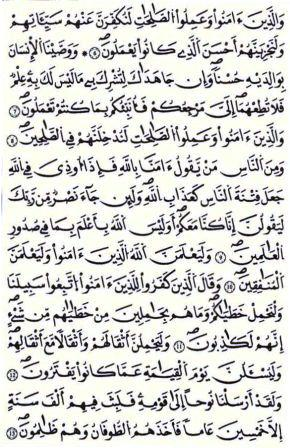 وَالَّذِينَ ءَامَنُوا وَعَمِلُوا الصَّٰلِحَٰتِ لَنُكَفِّرَنَّ عَنْهُمْ سَيِّـَٔاتِهِمْ
وَلَنَجْزِيَنَّهُمْ أَحْسَنَ الَّذِي كَانُوا يَعْمَلُونَ ٦ وَوَصَّيْنَا الْإِنسَٰنَ
بِوَٰلِدَيْهِ حُسْنًا وَإِن جَٰهَدَاكَ لِتُشْرِكَ بِي مَا لَيْسَ لَكَ بِهِ عِلْمٌ
فَلَا تُطِعْهُمَا إِلَيَّ مَرْجِعُكُمْ فَأُنَبِّئُكُم بِمَا كُنتُمْ تَعْمَلُونَ ٧
وَالَّذِينَ ءَامَنُوا وَعَمِلُوا الصَّٰلِحَٰتِ لَنُدْخِلَنَّهُمْ فِي الصَّٰلِحِينَ ٨
وَمِنَ النَّاسِ مَنْ يَّقُولُ ءَامَنَّا بِاللَّهِ فَإِذَا أُوذِيَ فِي اللَّهِ
جَعَلَ فِتْنَةَ النَّاسِ كَعَذَابِ اللَّهِ وَلَئِن جَاءَ نَصْرٌ مِّن رَّبِّكَ
لَيَقُولُنَّ إِنَّا كُنَّا مَعَكُمْ أَوَلَيْسَ اللَّهُ بِأَعْلَمَ بِمَا فِي صُدُورِ
الْعَٰلَمِينَ ٩ وَلَيَعْلَمَنَّ اللَّهُ الَّذِينَ ءَامَنُوا وَلَيَعْلَمَنَّ
الْمُنَٰفِقِينَ ١٠ وَقَالَ الَّذِينَ كَفَرُوا لِلَّذِينَ ءَامَنُوا اتَّبِعُوا سَبِيلَنَا
وَلْنَحْمِلْ خَطَٰيَٰكُمْ وَمَا هُم بِحَٰمِلِينَ مِنْ خَطَٰيَٰهُم مِّن شَيْءٍ
إِنَّهُمْ لَكَٰذِبُونَ ١١ وَلَيَحْمِلُنَّ أَثْقَالَهُمْ وَأَثْقَالًا مَّعَ أَثْقَالِهِمْ
وَلَيُسْـَٔلُنَّ يَوْمَ الْقِيَٰمَةِ عَمَّا كَانُوا يَفْتَرُونَ ١٢
وَلَقَدْ أَرْسَلْنَا نُوحًا إِلَىٰ قَوْمِهِ فَلَبِثَ فِيهِمْ أَلْفَ سَنَةٍ
إِلَّا خَمْسِينَ عَامًا فَأَخَذَهُمُ الطُّوفَانُ وَهُمْ ظَٰلِمُونَ ١٣